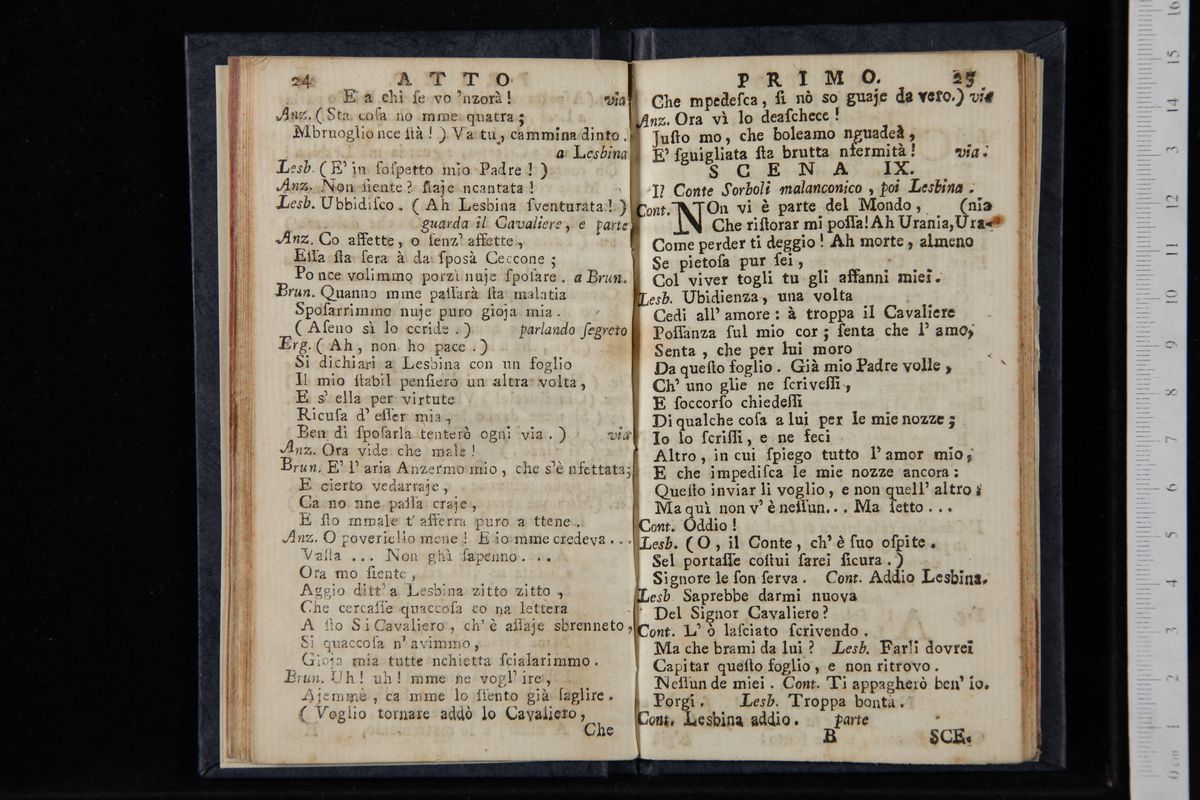 24 ATTO
E a chi ſe vo 'nzorà! via
Anz. (Sta coſa no mme quatra;
Mbruoglio nce ſtà!) Va tu, cammina dinto.
a Lesbina
Lesb. (E' in ſoſpetto mio Padre!)
Anz. Non ſiente? ſtaje ncantata!
Lesb. Ubbidiſco. (Ah Lesbina ſventurata!)
guarda il Cavaliere, e parte
Anz. Co affette, o ſenz' affette,
Eſſa ſta ſera à da ſposà Ceccone;
Po nce volimmo porzì nuje ſpoſare. a Brun.
Brun. Quanno mme paſſarà ſta malatia
Spoſarrimmo nuje puro gioja mia.
(Aſeno sì lo ccride.) parlando ſegreto
Erg. (Ah, non ho pace.)
Si dichiari a Lesbina con un foglio
Il mio ſtabil penſiero un altra volta,
E s' ella per virtute
Ricuſa d' eſſer mia,
Ben di ſpoſarla tenterò ogni via.) via
Anz. Ora vide che male!
Brun. E' l' aria Anzermo mio, che s'è nfettata;
E cierto vedarraje,
Ca no nne paſſa craje,
E ſto mmale t' afferra puro a ttene.
Anz. O poveriello mene! E io mme credeva...
Vaſta ... Non ghì ſapenno. ..
Ora mo ſiente,
Aggio ditt' a Lesbina zitto zitto,
Che cercaſſe quaccoſa co na lettera
A ſto Si Cavaliero, ch' è aſſaje sbrenneto,
Si quaccoſa n' avimmo,
Gioja mia tutte nchietta ſcialarimmo.
Brun. Uh! uh! mme ne vogl' ire,
Ajemme, ca mme lo ſtento già ſaglire.
(Voglio tornare addò lo Cavaliero,
Che
PRIMO. 25
Che mpedeſca, ſi nò so guaje da vero.) via
Anz. Ora vì lo deaſchece!
Juſto mo, che boleamo nguadeà,
E' ſguigliata ſta brutta nfermità! via.
SCENA IX.
Il Conte Sorboli malanconico, poi Lesbina.
Cont. NOn vi è parte del Mondo, (nia
Che riſtorar mi poſſa! Ah Urania, Ura-
Come perder ti deggio! Ah morte, almeno
Se pietoſa pur ſei,
Col viver togli tu gli affanni miei.
Lesb. Ubidienza, una volta
Cedi all' amore: à troppa il Cavaliere
Poſſanza ſul mio cor; ſenta che l' amo,
Senta, che per lui moro
Da queſto foglio. Già mio Padre volle,
Ch' uno glie ne ſcriveſſi,
E ſoccorſo chiedeſſi
Di qualche coſa a lui per le mie nozze;
Io lo ſcriſſi, e ne feci
Altro, in cui ſpiego tutto l' amor mio;
E che impediſca le mie nozze ancora:
Queſto inviar li voglio, e non quell' altro;
Ma quì non v' è neſſun... Ma ſetto...
Cont. Oddio!
Lesb. (O, il Conte, ch' è ſuo oſpite.
Sel portaſſe coſtui ſarei ſicura.)
Signore le ſon ſerva. Cont. Addio Lesbina.
Lesb Saprebbe darmi nuova
Del Signor Cavaliere?
Cont. L' ò laſciato ſcrivendo.
Ma che brami da lui? Lesb. Farli dovrei
Capitar queſto foglio, e non ritrovo.
Neſſun de miei. Cont. Ti appagherò ben' io.
Porgi. Lesb. Troppa bontà.
Cont. Lesbina addio. parte
B SCE.